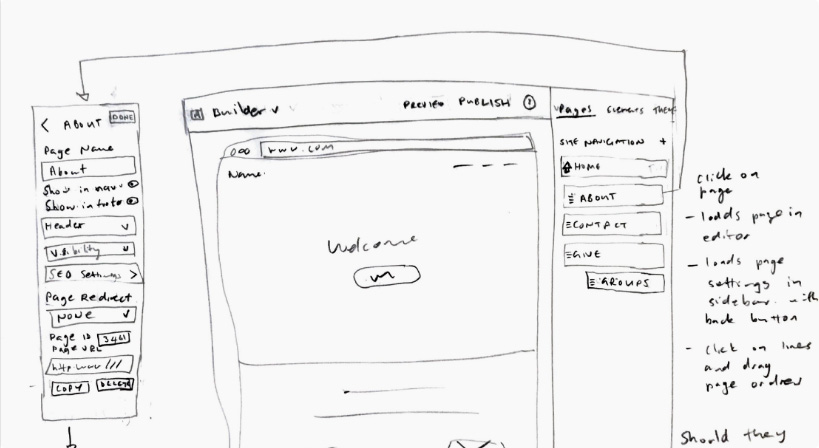 < ABOUT DONE
Page Name
About
Show in nav
Show in footer
Header
Visibility
SEO Settings >
Page Redirect
NONE
Page ID 3461
Page URL
http:www///
COPY DELETE
Builder PREVIEW PUBLISH ?
www.com
Name
Welcome
Pages Elements THEM
SITE NAVIGATION +
HOME
ABOUT
CONTACT
GIVE
GROUPS
click on
page
- loads page in
editor
- loads page
settings in
sidebar with
back button
- click on lines
and drag
page order
Should they